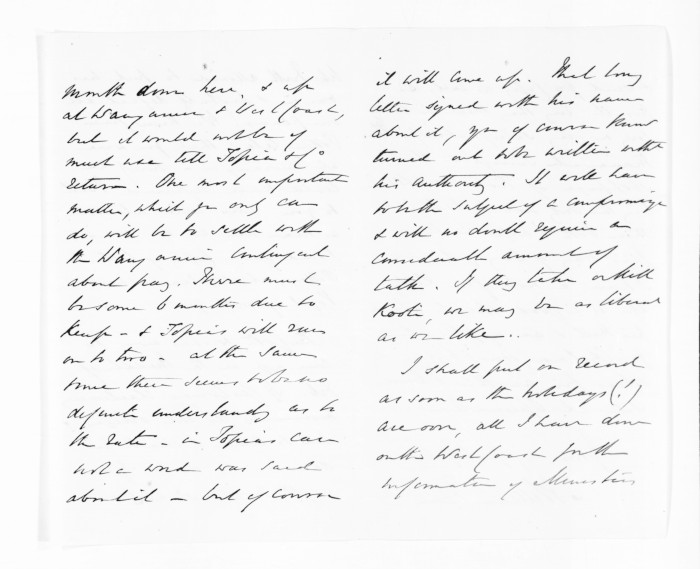 month down here, & up
at Wanganui & West Coast,
but it would not be of
much use till Topia & Co
return. One most important
matter, which you only can
do, will be to settle with
the Wanganui Contingent
about pay. There must
be some 6 months due to
Kemp - & Topia's will run
on to two - at the same
time there seems to be no
definite understanding as to
the rate - in Topia's case
not a word was said
about it - but of course
it will come up. That long
letter signed with his name
about it, you of course know
turned out to be written without
his authority. It will have
to be the subject of a compromise
& will no doubt require a
considerable amount of
talk. If they take or kill
Kooti, we may be as liberal
as we like..
I shall put on record
as soon as the holidays (!)
are over, all I have done
on the West Coast for the
information of Ministers